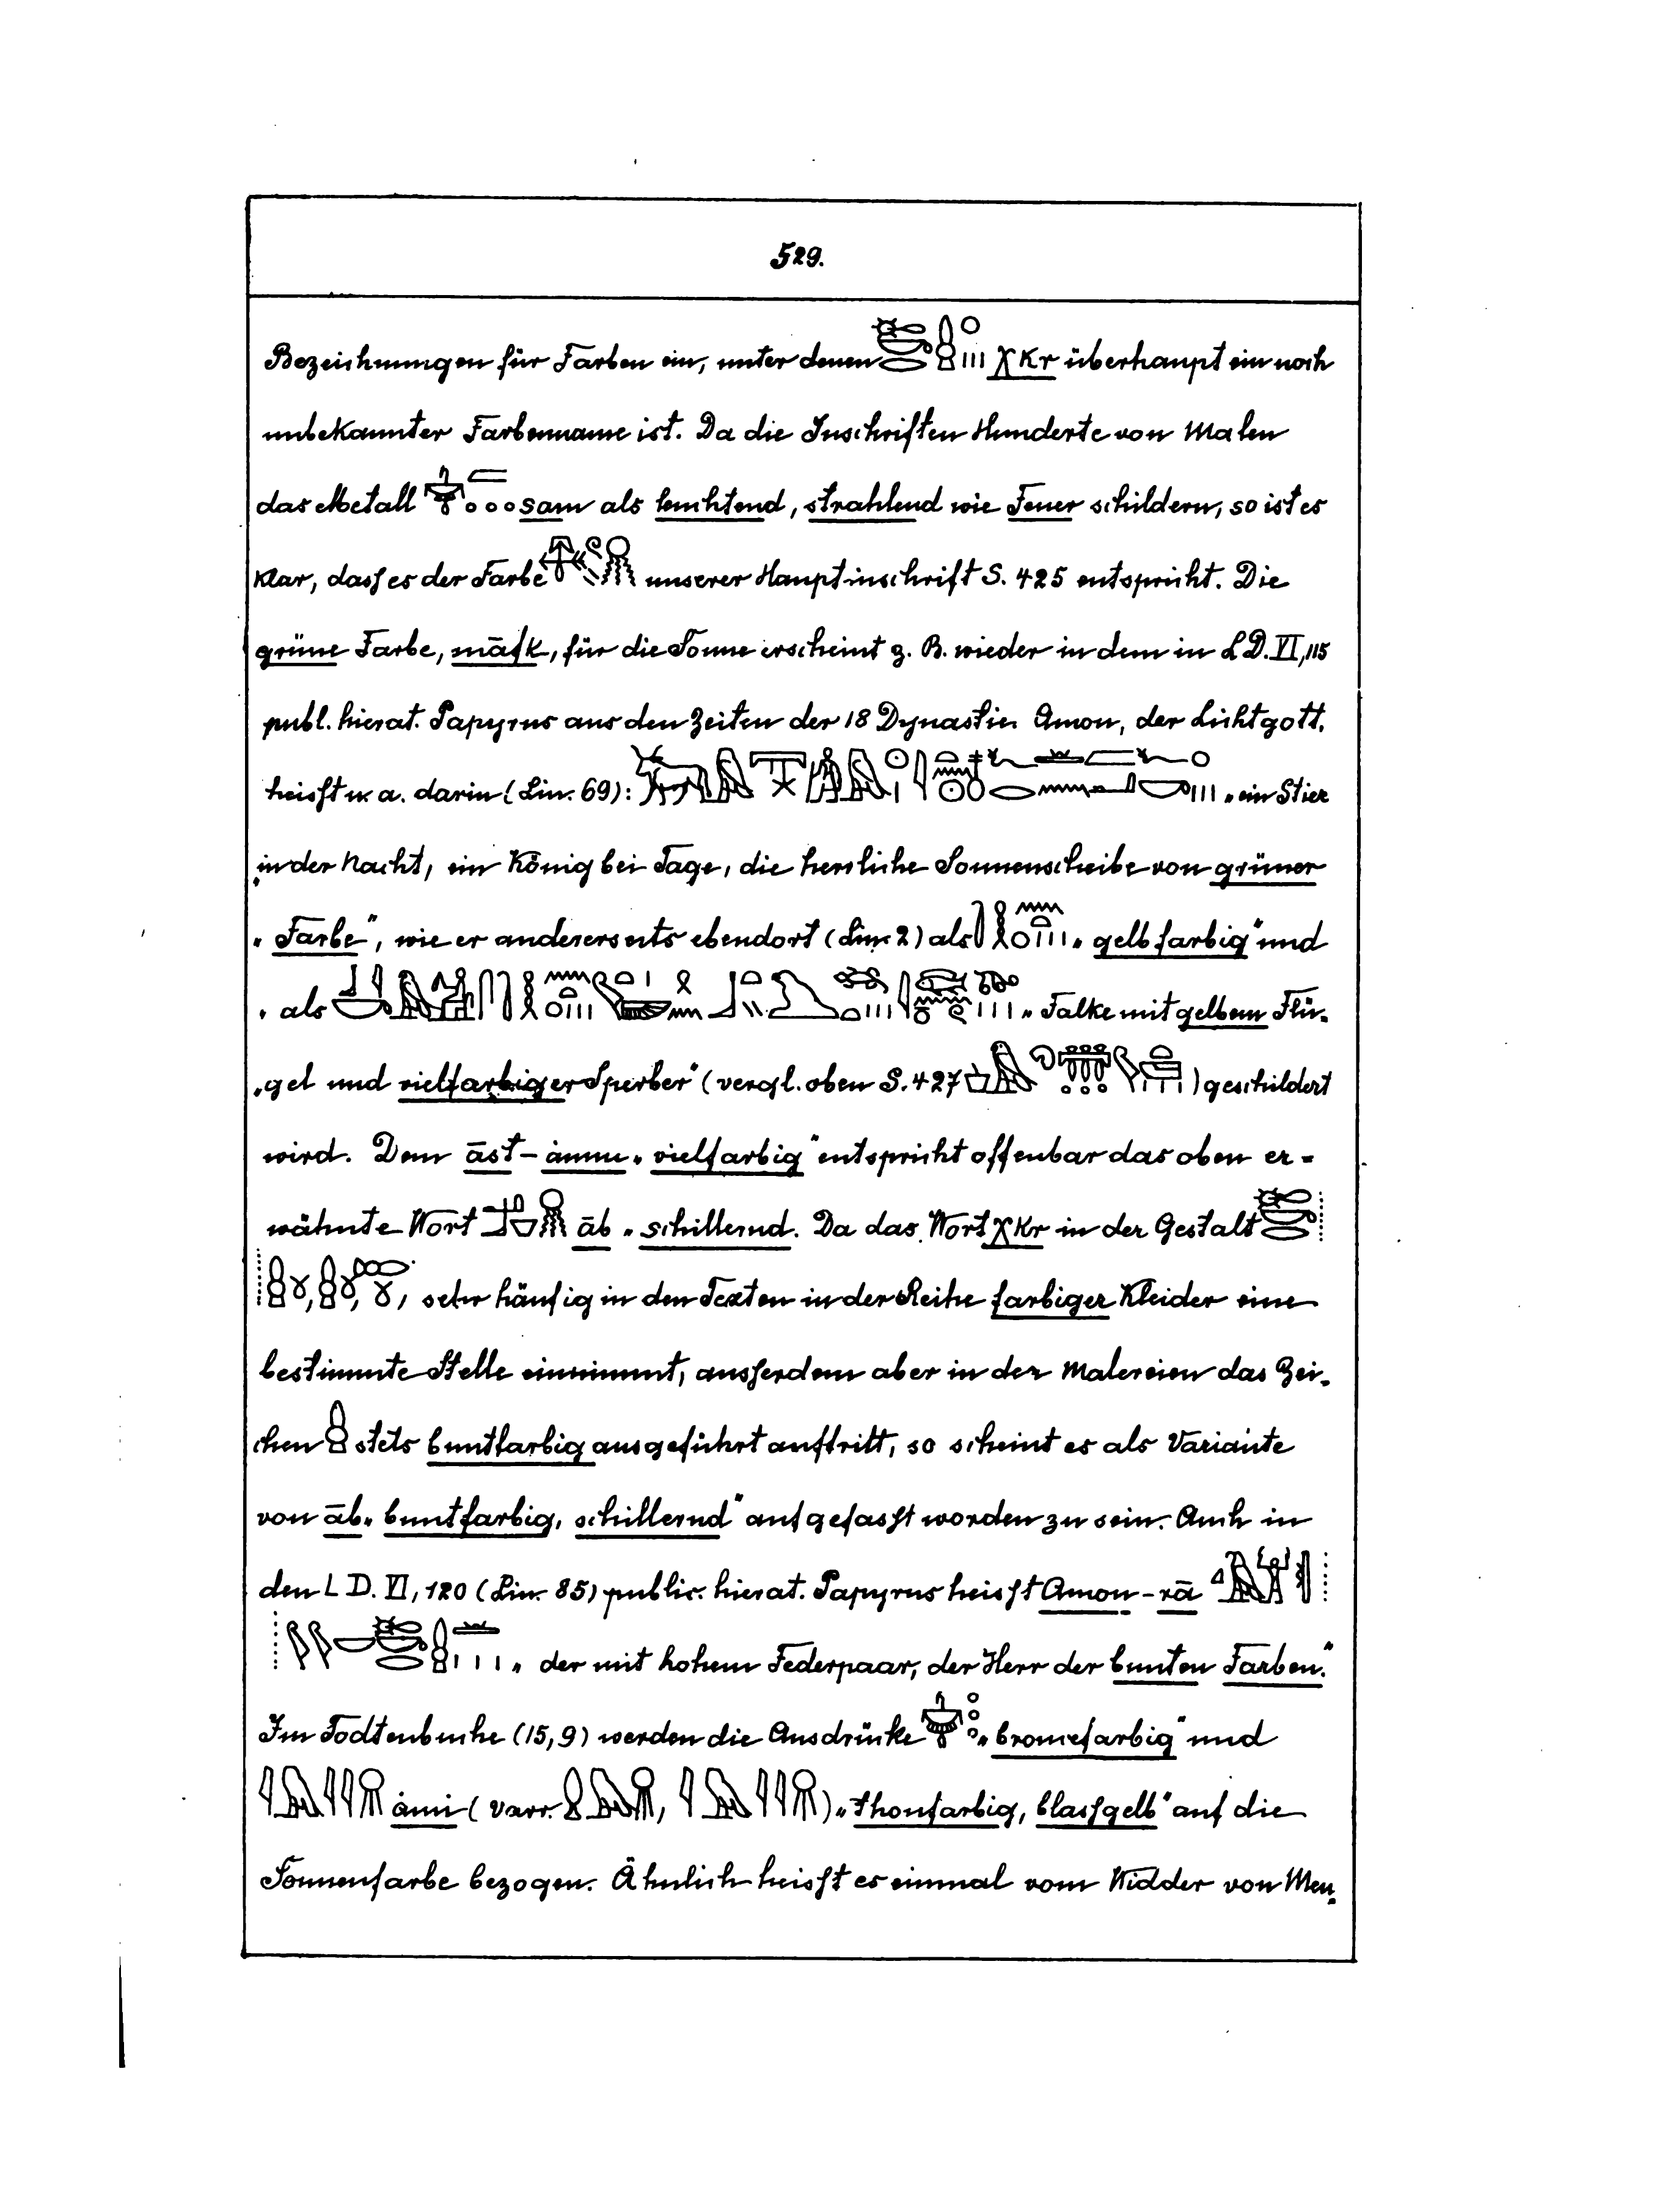 529.
Bezeichnungen für Farben ein, unter denen χkr überhaupt ein noch
unbekannter Farbenname ist. Da die Inschriften Hunderte von Malen
das Metall sam als leuchtend, strahlend wie Feuer schildern, so ist es
klar, dass es der Farbe unserer Hauptinschrift S. 425 entspricht. Die
grüne Farbe, māfk, für die Sonne erscheint z. B. wieder in dem in LD. VI, 115
publ. hierat. Papyrus aus den Zeiten der 18 Dynastie. Amon, der Lichtgott,
heisst u. a. darin (Lin. 69): „ein Stier
„in der Nacht, ein König bei Tage, die herrliche Sonnenscheibe von grüner
„Farbe", wie er andererseits ebendort (Lin. 2) als „gelbfarbig" und
„als „Falke mit gelbem Flü-
„gel und vielfarbiger Sperber" (vergl. oben S. 427 ) geschildert
wird. Dem āst-ȧnnu „vielfarbig" entspricht offenbar das oben er-
wähnte Wort āb „schillernd. Da das Wort χkr in der Gestalt
, , , sehr häufig in den Texten in der Reihe farbiger Kleider eine
bestimmte Stelle einnimmt, ausserdem aber in den Malereien das Zei-
chen stets buntfarbig ausgeführt auftritt, so scheint es als Variante
von āb „buntfarbig, schillernd" aufgefasst worden zu sein. Auch in
den LD. VI, 120 (Lin. 85) public. hierat. Papyrus heisst Amon-rā
„der mit hohem Federpaar, der Herr der bunten Farben."
Im Todtenbuche (15,9) werden die Ausdrücke „broncefarbig" und
ȧmi (varr. , ) „thonfarbig, blassgelb" auf die
Sonnenfarbe bezogen. Ähnlich heisst es einmal vom Widder von Men-